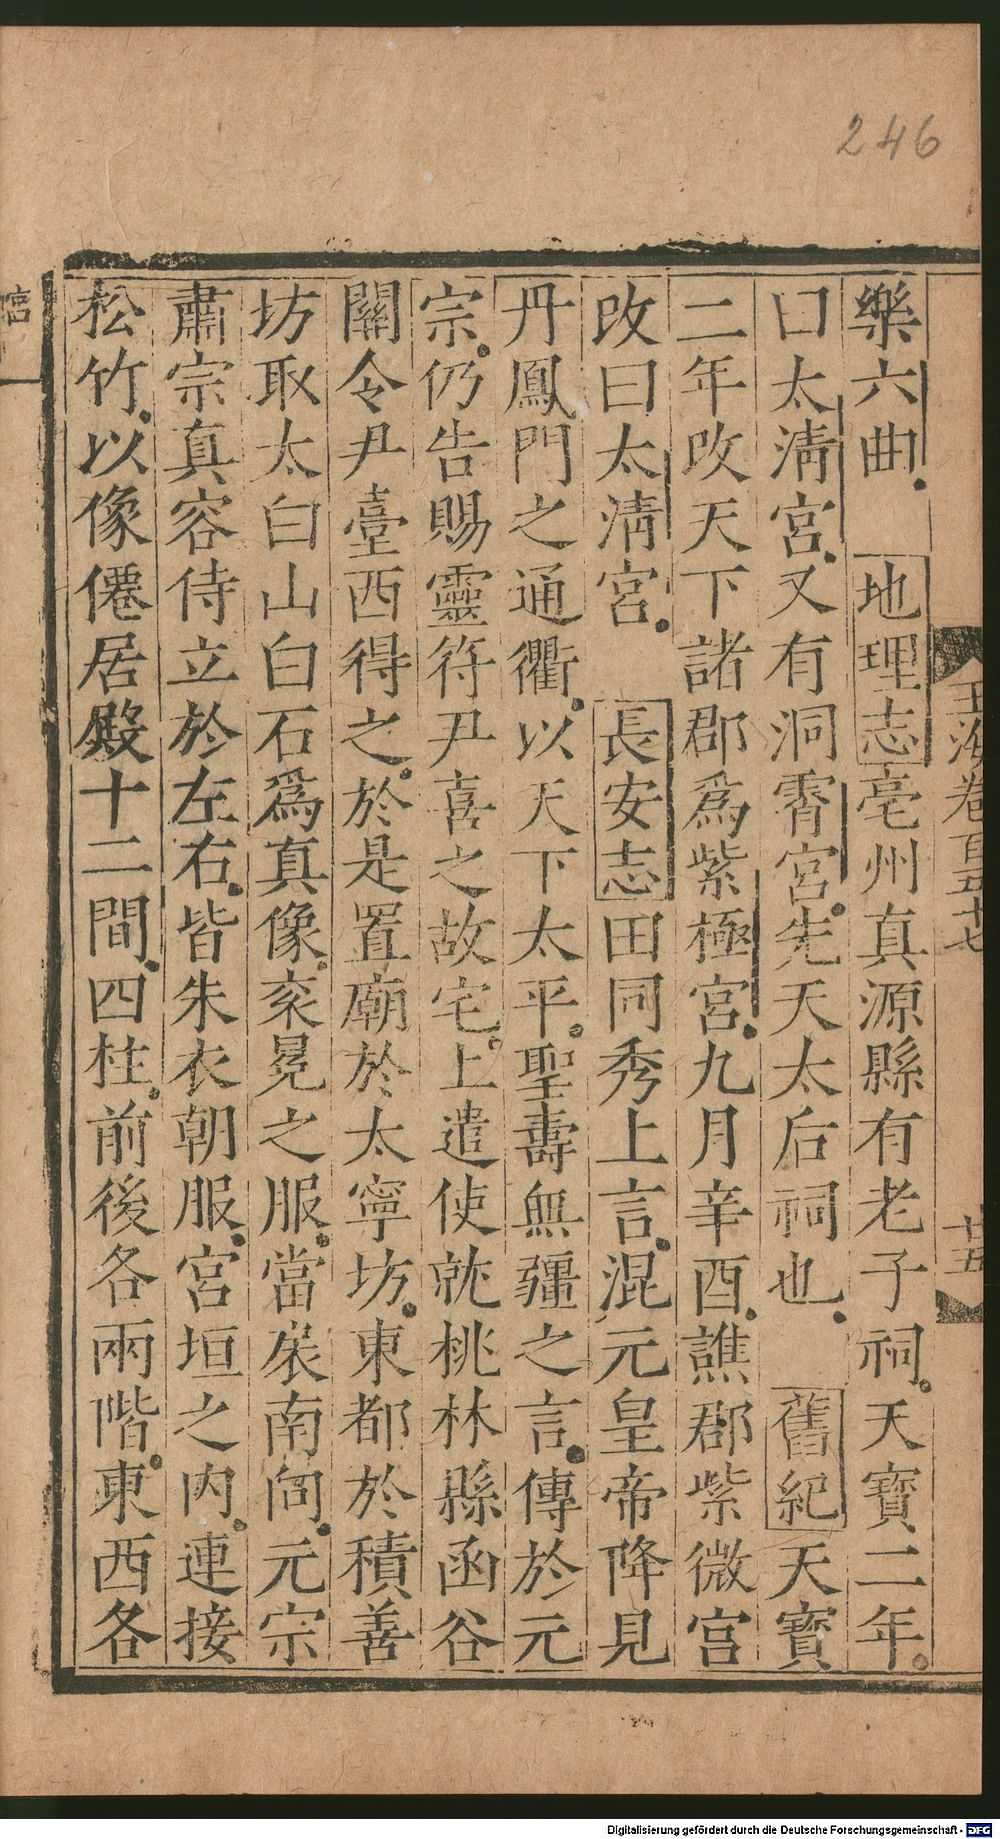 246
樂六曲 地理志亳州真源縣有老子祠天寶二年
曰太淸宮又有洞霄宮先天太后祠也 舊紀天寶
二年改天下諸郡爲紫極宮九月辛酉譙郡紫微宮
改曰太淸宮 長安志田同秀上言混元皇帝降見
丹鳳門之通衢以天下太平聖壽無疆之言傳於元
宗仍告賜靈符尹喜之故宅上遣使就桃林縣函谷
關令尹臺西得之於是置廟於太寧坊東都於積善
坊取太白山白石爲真像衮冕之服當扆南向元宗
肅宗真容侍立於左右皆朱衣朝服宮垣之內連接
松竹以像僊居殿十二間四柱前後各兩階東西各
玉海卷百五十七
廿五
Digitalisierung gefördert durch die Deutsche Forschungsgemeinschaft - DFG